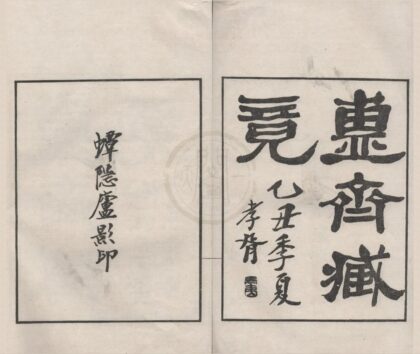 盙齊臧
竟
乙丑季夏
孝胥
蟫隱廬影印